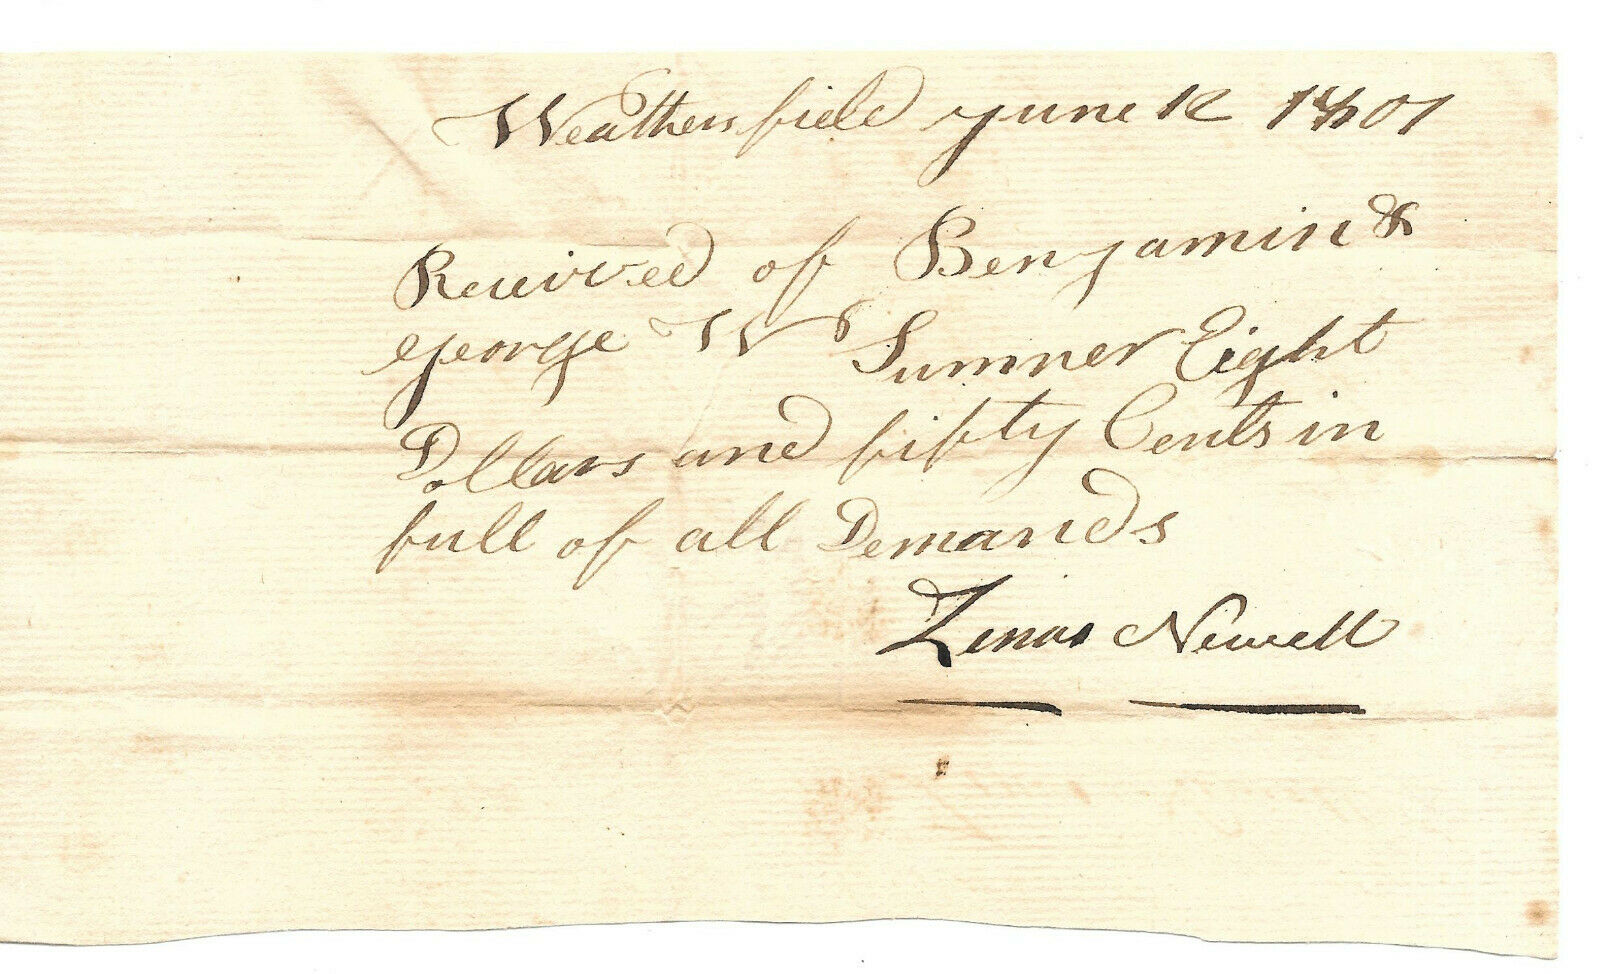 Weathersfield June 12 1801
Received of Benjamin &
George W Sumner Eight
Dollars and fifty Cents in
full of all Demands
Zenas Newell